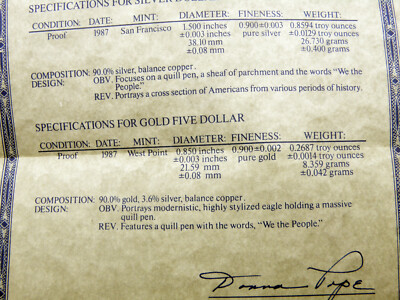 SPECIFICATIONS FOR SILVER DOLLAR
CONDITION: DATE: MINT: DIAMETER: FINENESS: WEIGHT:
Proof 1987 San Francisco 1.500 inches 0.900±0.003 0.8594 troy ounces
±0.003 inches pure silver ±0.0129 troy ounces
38.10 mm 26.730 grams
±0.08 mm ±0.400 grams
COMPOSITION: 90.0% silver, balance copper.
DESIGN: OBV. Focuses on a quill pen, a sheaf of parchment and the words "We the
People."
REV. Portrays a cross section of Americans from various periods of history.
SPECIFICATIONS FOR GOLD FIVE DOLLAR
CONDITION: DATE: MINT: DIAMETER: FINENESS: WEIGHT:
Proof 1987 West Point 0.850 inches 0.900±0.002 0.2687 troy ounces
±0.003 inches pure gold ±0.0014 troy ounces
21.59 mm 8.359 grams
±0.08 mm ±0.042 grams
COMPOSITION: 90.0% gold, 3.6% silver, balance copper.
DESIGN: OBV. Portrays modernistic, highly stylized eagle holding a massive
quill pen.
REV. Features a quill pen with the words, "We the People."
Donna Pope